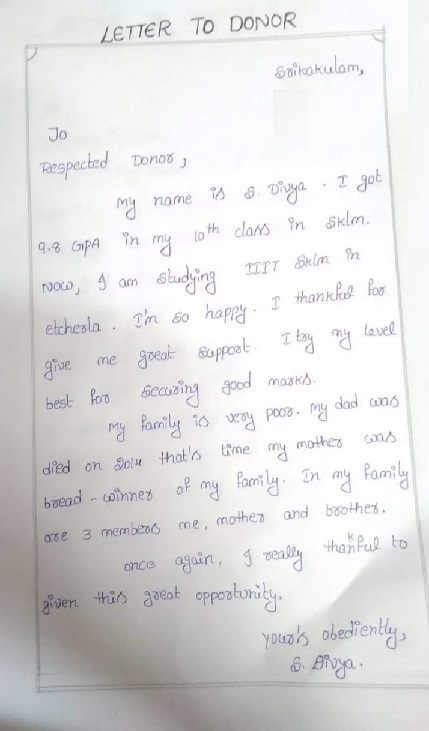 LETTER TO DONOR
Srikakulam,
To
Respected Donor,
My name is S. Divya. I got
9.8 GPA in my 10th class in Sklm.
Now, I am studying IIIT Sklm in
etcherla. I'm so happy. I thankful for
give me great support. I try my level
best for securing good marks.
My family is very poor. My dad was
died on 2014 that's time my mother was
bread-winner of my family. In my family
are 3 members me, mother and brother.
once again, I really thankful to
given this great opportunity.
your's obediently,
S. Divya.